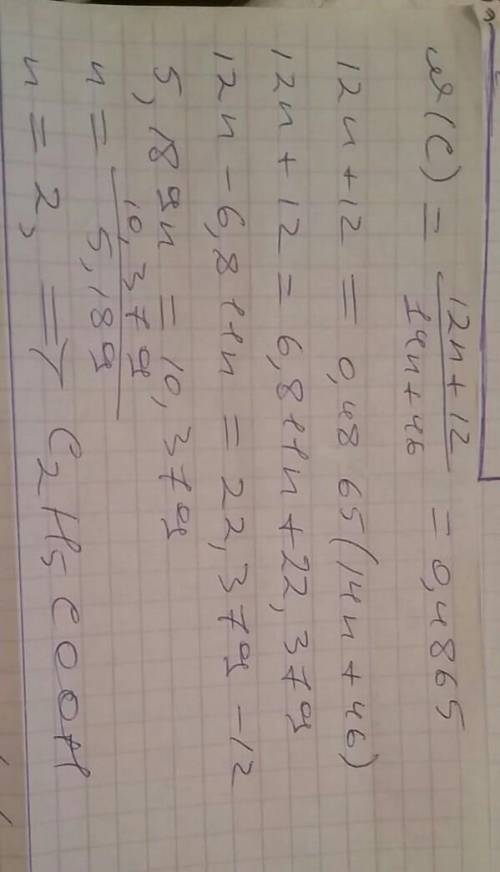 ω(C) = (12n+12)/(14n+46) = 0,4865
12n+12 = 0,4865(14n+46)
12n+12 = 6,811n+22,379
12n-6,811n = 22,379-12
5,189n = 10,379
n = 10,379/5,189
n = 2, => C2H5COOH